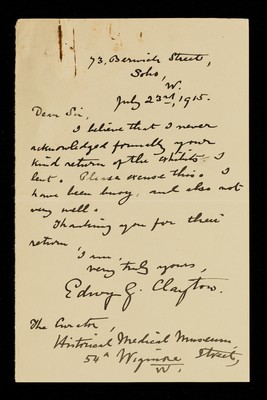 73, Berwick Street,
Soho,
W.
July 23rd, 1915.
Dear Sir,
I believe that I never
acknowledged formally your
kind return of the exhibits I
lent. Please excuse this. I
have been busy, and also not
very well.
Thanking you for their
return
I am,
Very truly yours,
Edwy G. Clayton.
The Curator,
Historical Medical Museum
54a Wigmore Street,
W.